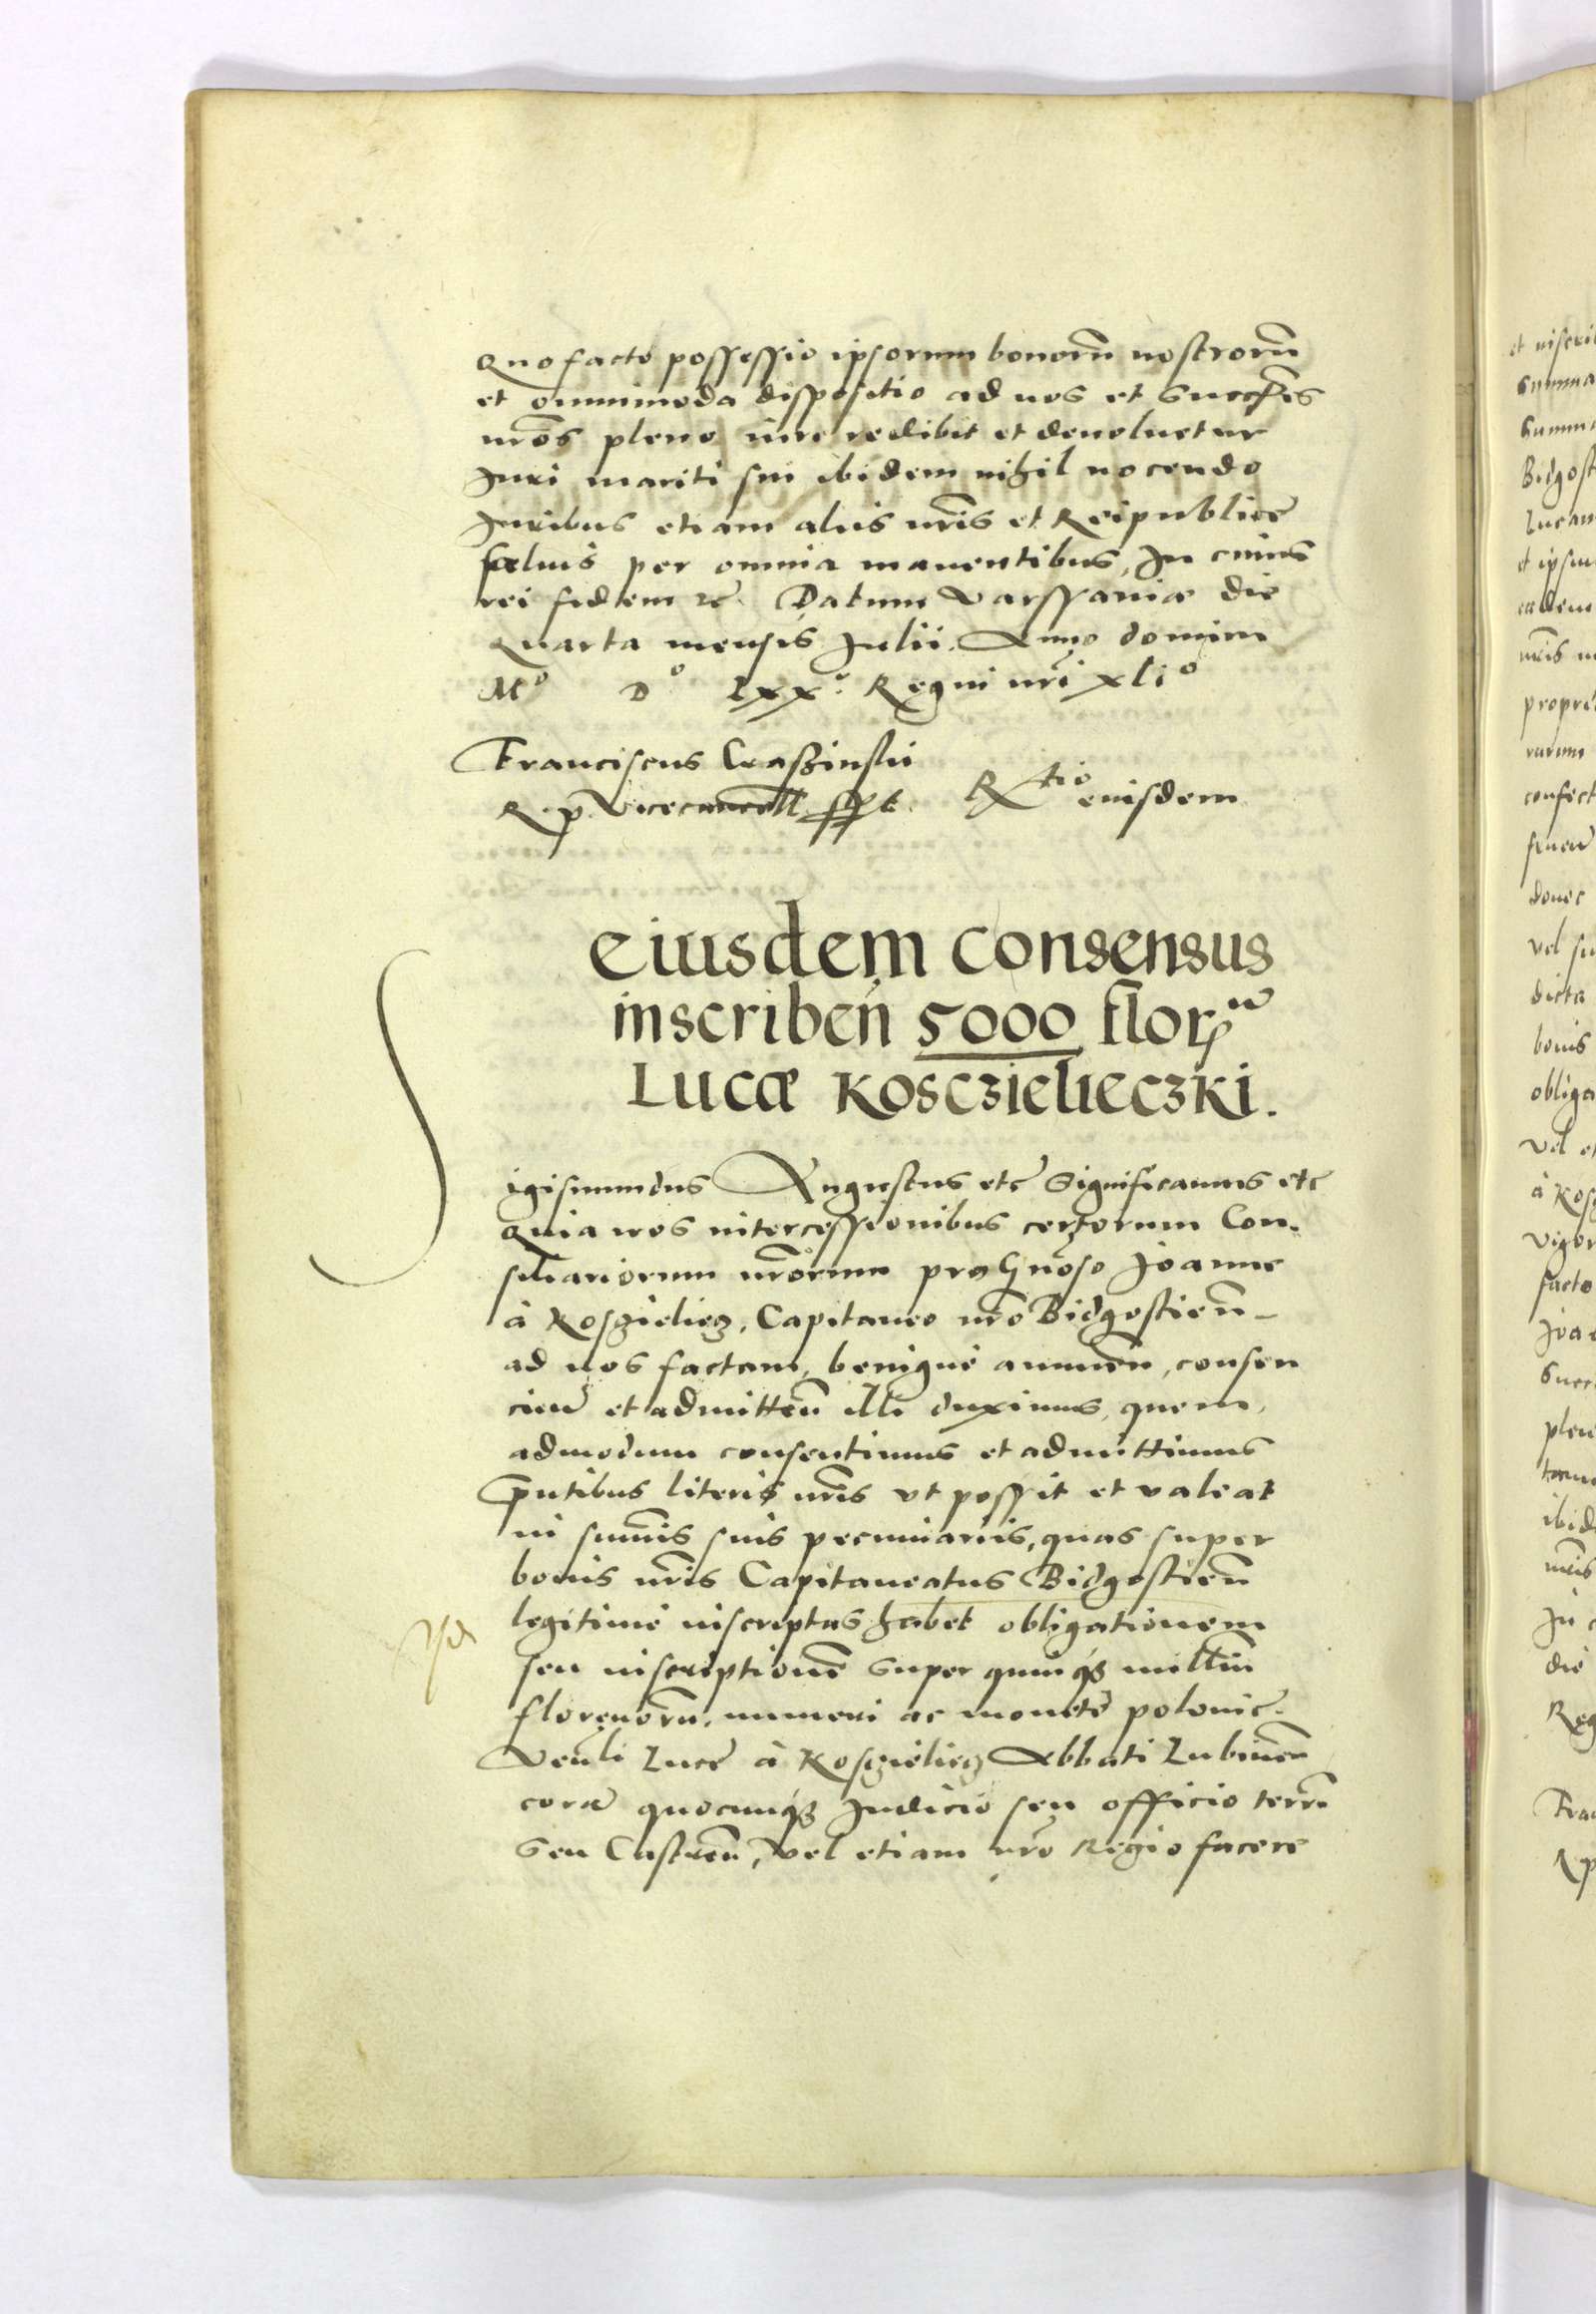 quo facto possessio ipsorum bonorū nostrorū
et omnimoda dispositio ad nos et Succēs
nrōs pleno iure redibit et devoluetur
Juri mariti sui ibidem nihil nocendo
Juribus etiam aliis nrīs et Reipublice
salvis per omnia manentibus, In cuius
rei fidem rc̄. Datum Varssaviæ die
quarta mensis Julii. Anno domini
Mº Dº Lxxº Regni nrī xliº
Franciscus Craszinskii
R. p. Vicecancell. sspt. Rtio eiusdem
eiusdem consensus
inscribeń 5000 flor
Lucæ Kosczielieczki.
Sigismundus Augustus etc̄ Significamus etc̄
quia nos intercessionibus certorum Con-
siliariorum nrōrum pro Gnōso Joanne
à Kosczielięcz, Capitaneo nrō Bidgostien̄
ad nos factam, benignè annuen̄, consen
cien̄ et admitten̄ illi duximus, quem,
admodum consentimus et admittimus
pn̄tibus literis nrīs vt possit et valeat
in sum̄is suis pecuniariis, quas super
bonis nrīs Capitaneatus Bidgostien̄
legitimè inscriptas habet obligationem
seu inscriptionē super quinqꝫ millm̄
florenorū. numeri ac monetē polonic̄.
Ven̄li Lucē à Kosczielięcz Abbati Lubinen̄
corā quocunqꝫ Judicio seu officio terrn̄
Seu Castren̄, vel etiam nrō Regio facere